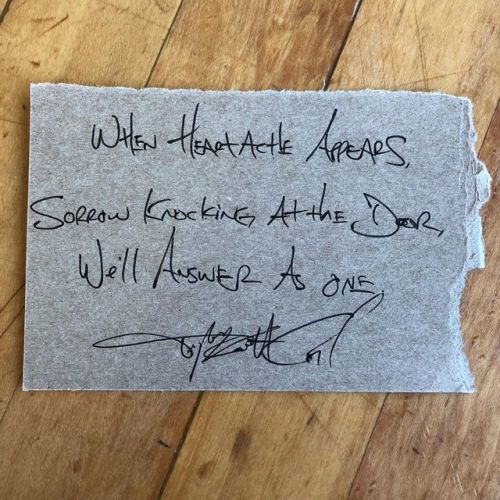 When Heartache Appears,
Sorrow Knocking At the Door,
We'll Answer As one,